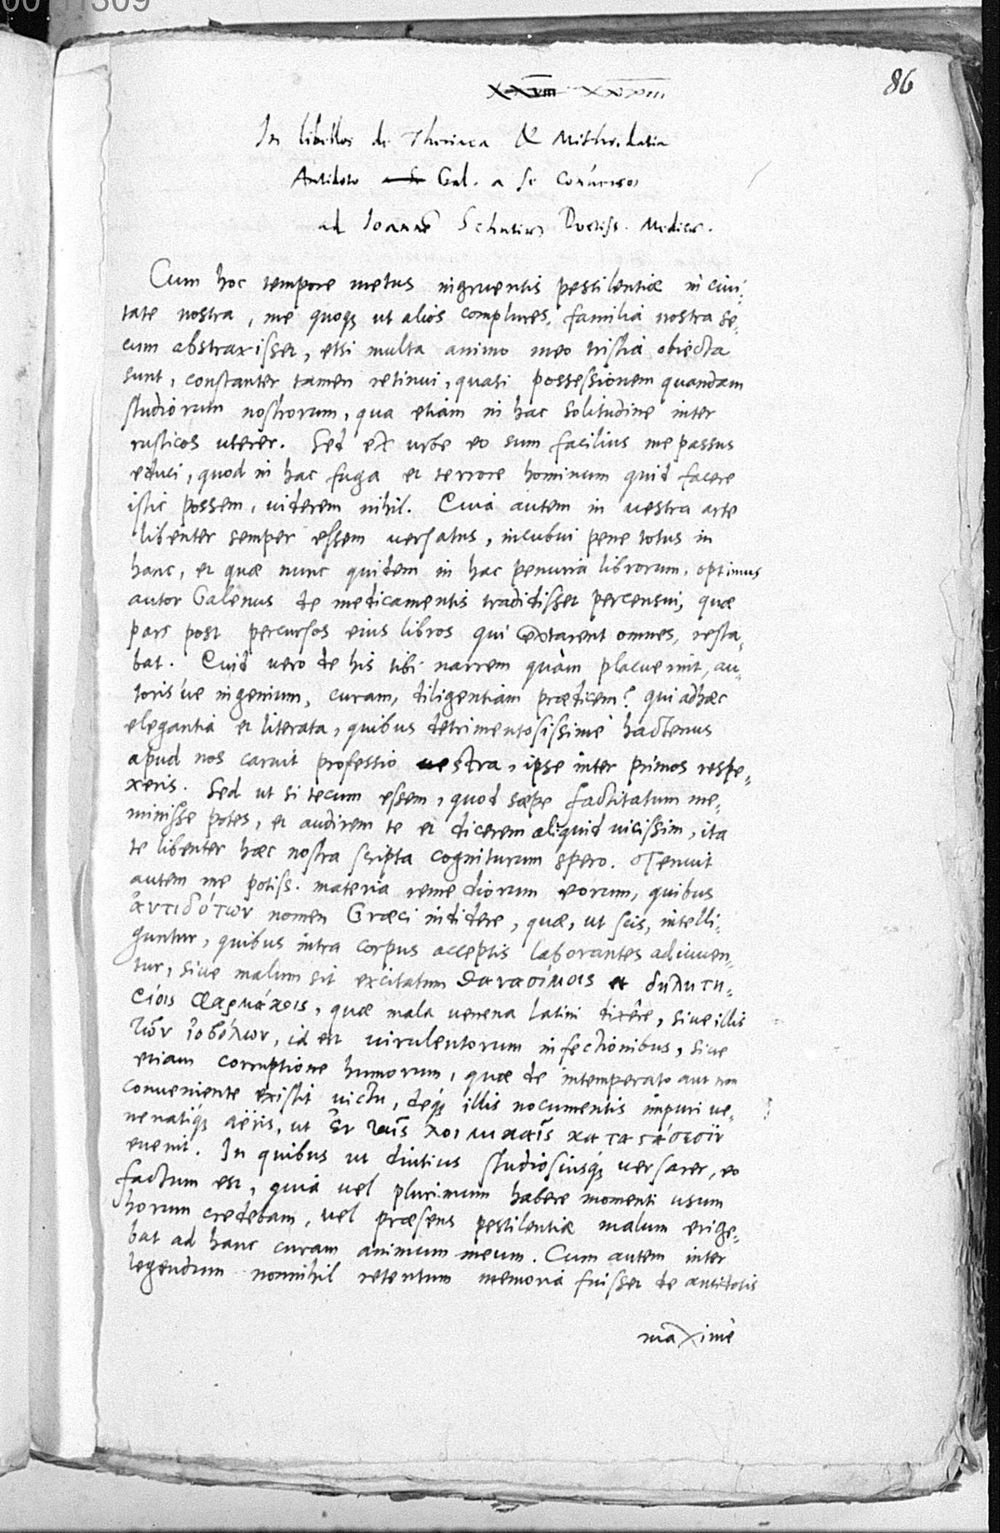 00111309
86
XXVIII XXVIII
In libellos de Theriaca & Mithridatia
Antidoto Gal. a se Conversos
ad Ioannē Schutiū Doctiss. Medicū.
Cum hoc tempore metus ingruentis pestilentiæ in ciui-
tate nostra, me quoq; ut alios complures, familia nostra se-
cum abstraxisset, etsi multa animo meo tristia obiecta
sunt, constanter tamen retinui, quasi possessionem quandam
studiorum nostrorum, qua etiam in hac solitudine inter
rusticos uterer. Sed ex urbe eo sum facilius me passus
educi, quod in hac fuga et terrore hominum quid facere
istic possem, viderem nihil. Cuia autem in vestra arte
libenter semper essem versatus, incubui pene totus in
hanc, et quæ nunc quidem in hac penuria librorum, optimus
autor Galenus de medicamentis tradidisset percensui, quæ
pars post percursos eius libros qui extarent omnes, resta-
bat. Quid vero de his tibi narrem quàm placuerint, au-
toris've ingenium, curam, diligentiam prædicem? qui adhæc
elegantia et literata, quibus detrimentosissimè hactenus
apud nos caruit professio vestra, ipse inter primos respe-
xeris. Sed ut si tecum essem, quod sæpe factitatum me-
minisse potes, et audirem te et dicerem aliquid vicissim, ita
te libenter hæc nostra scripta cogniturum spero. Tenuit
autem me potiss. materia remediorum eorum, quibus
ἀντιδότων nomen Græci indidere, quæ, ut scis, intelli-
guntur, quibus intra corpus acceptis laborantes adiuuen-
tur, siue malum sit excitatum θανασίμοις et δηλητη-
ρίοις φαρμάκοις, quæ mala venena Latini dixêre, siue illis
τῶν ἰοβόλων, id est virulentorum infectionibus, siue
etiam corruptione humorum, quæ de intemperato aut non
conveniente existit victu, deq; illis nocumentis impuri ve-
nenatiq; aëris, ut ἐν ταῖς λοιμικαῖς καταστάσεσιν
evenit. In quibus ut diutius studiosiusq; versarer, eo
factum est, quia vel plurimum habere momenti usum
horum credebam, vel præsens pestilentiæ malum erige-
bat ad hanc curam animum meum. Cum autem inter
legendum nonnihil retentum memoria fuisset de antidotis
maximè